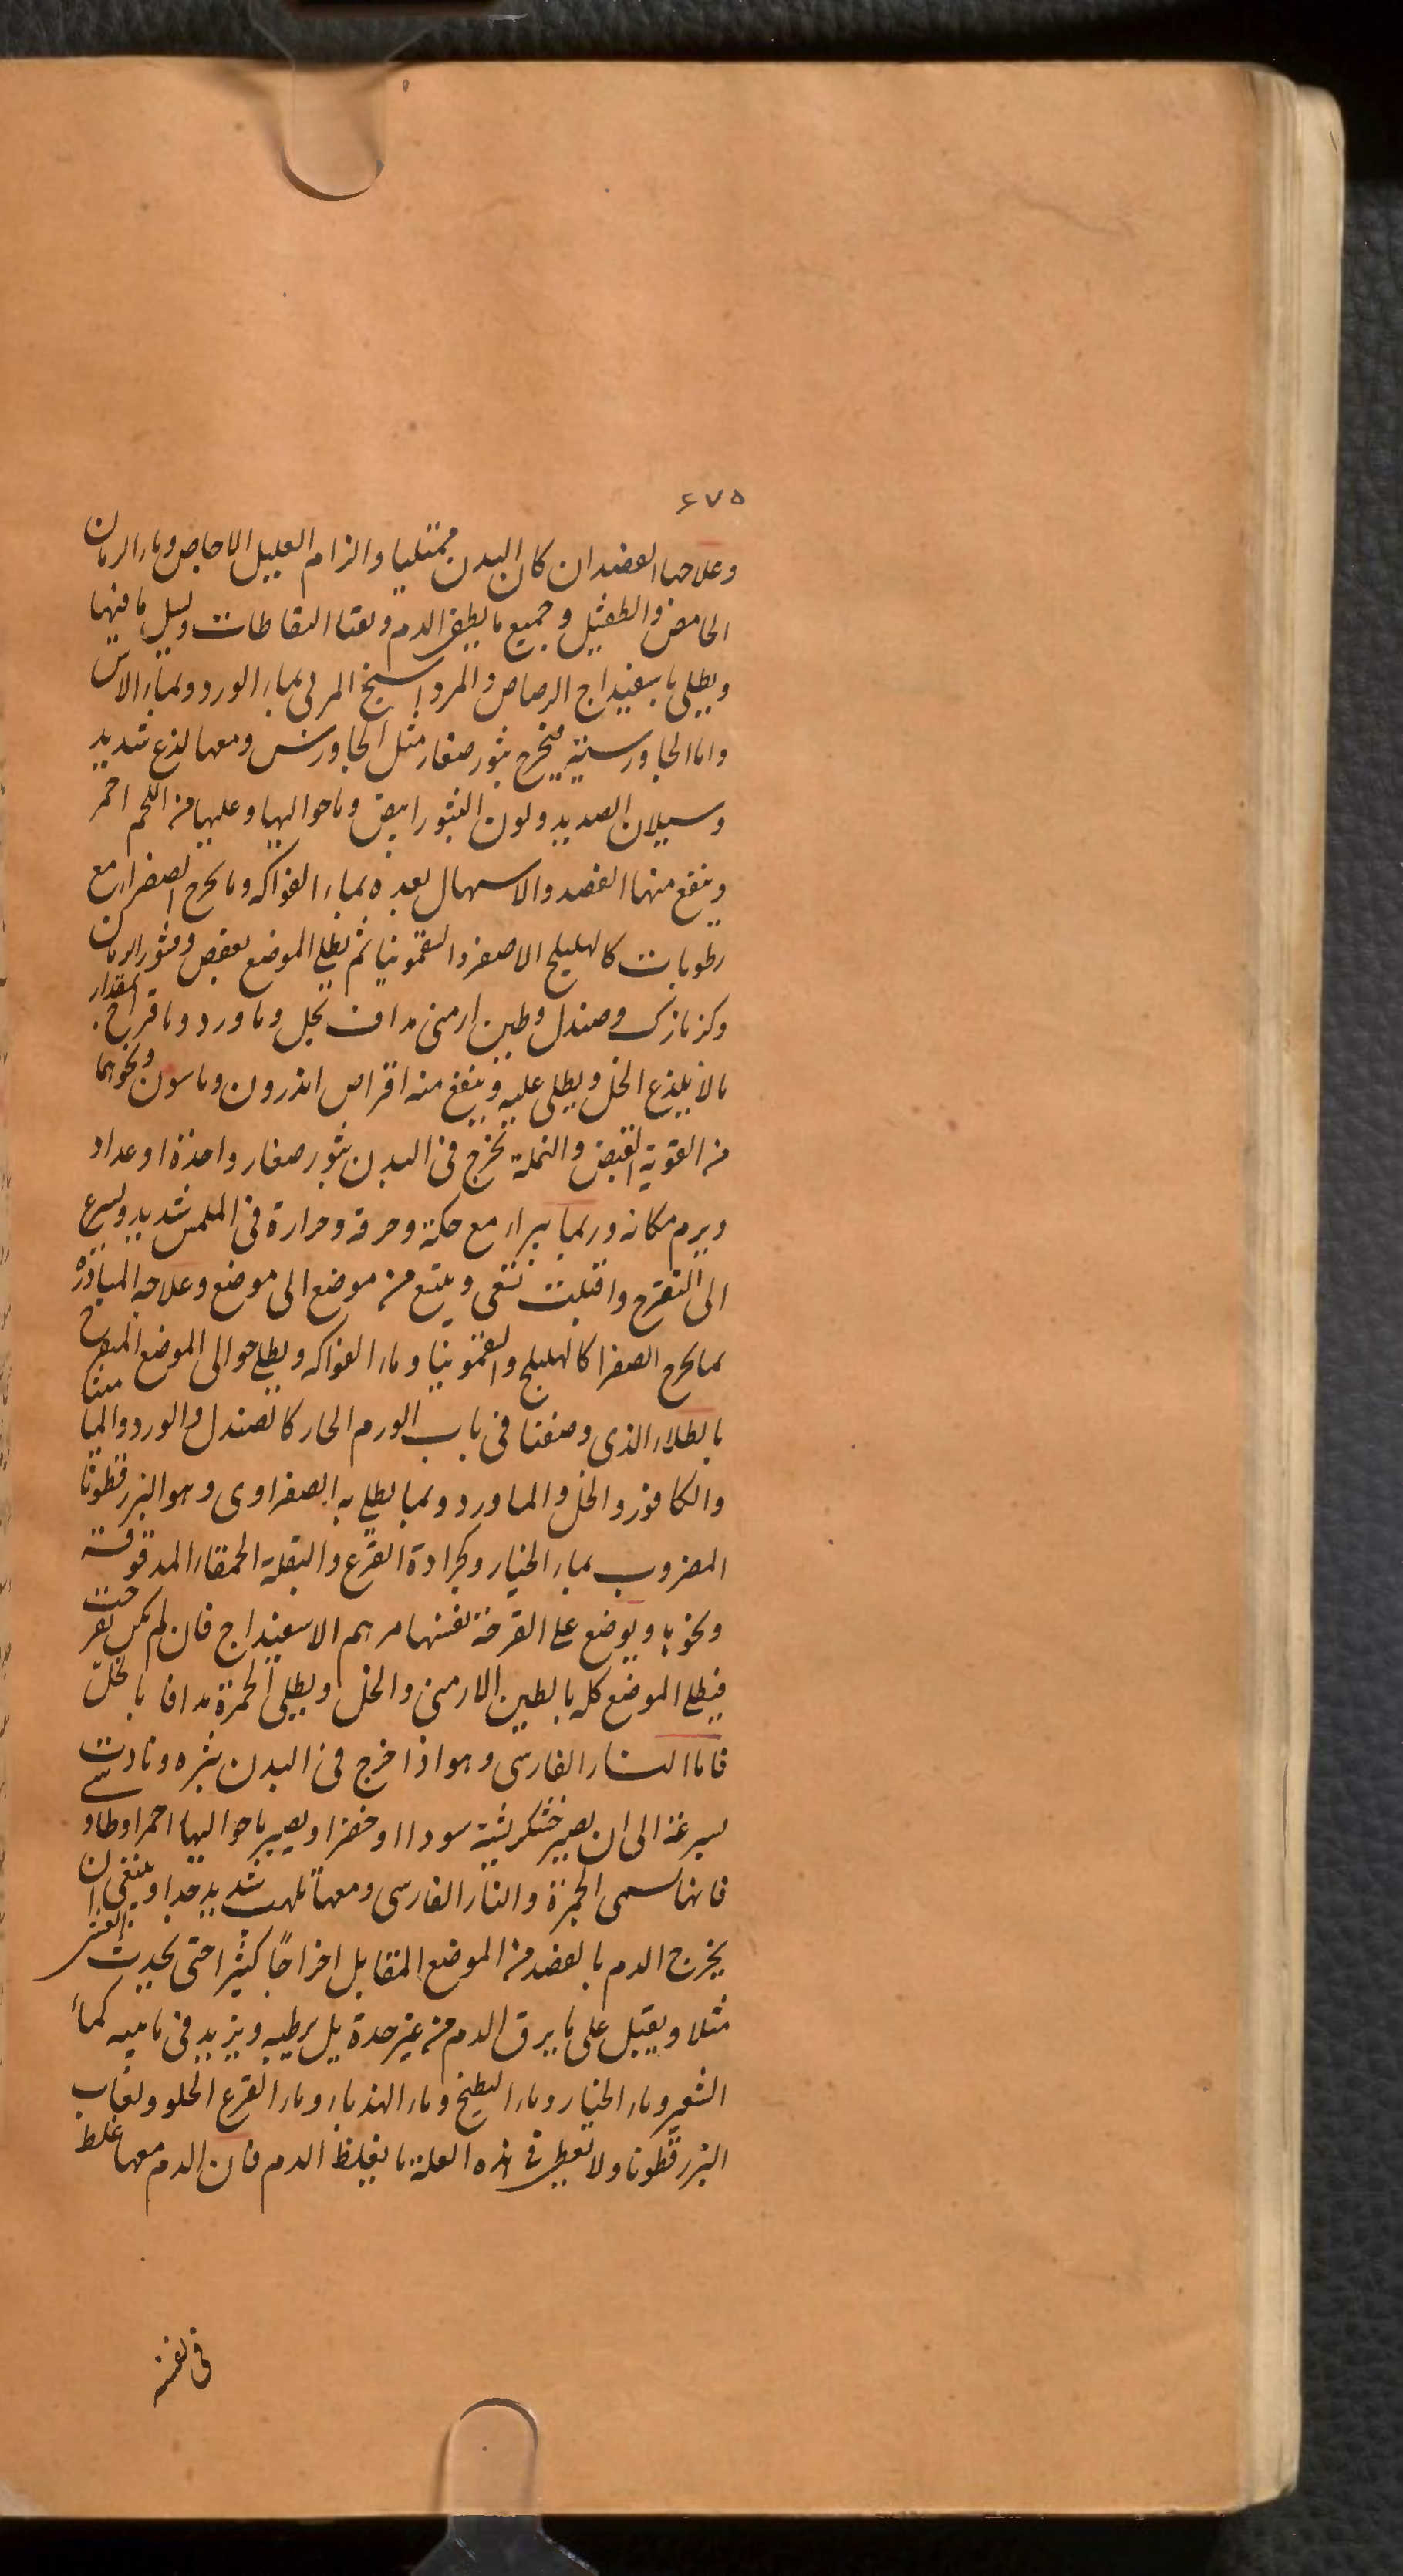 ٤٧٥
وعلاجها الفصد ان كان البدن ممتليا والزام العليل الاجاص وماء الرمان
الحامض والطفثيل وجميع ما يطفى الدم وتفقا النفاطات ويسيل ما فيها
ويطلى باسفيداج الرصاص والمرداسنج المربى بماء الورد وبماء الاس
واما الجاورسية فيخرج بثور صغار مثل الجاورس ومعها لذع شديد
وسيلان الصديد ولون البثور ابيض وما حواليها وعليها من اللحم احمر
وينفع منها الفصد والاسهال بعده بماء الفواكه وما يخرج الصفراء مع
رطوبات كالهليلج الاصفر والسقمونيا ثم يطلى الموضع بعفص وقشور الرمان
وكزمازك وصندل وطين ارمنى مداف بخل وماورد وماقراح بمقدار
مالا يلذع الخل ويطلى عليه وينفع منه اقراص اندرون وماسون ونحوهما
من القوية القبض والنملة تخرج فى البدن بثور صغار واحدة او عداد
ويرم مكانه وربما بيراء مع حكة وحرقة وحرارة فى الملمس شديد ويسرع
الى التقرح واقبلت تنقى ويتبع من موضع الى موضع وعلاجه المبادرة
بما يخرج الصفرا كالهليلج والسقمونيا وماء الفواكه ويطلى حوالى الموضع المتقرح
بالطلاء الذى وصفنا فى باب الورم الحار كالصندل والورد والماميثا
والكافور والخل والماورد وبما يطلى به الصفراوى وهو البزرقطونا
المضروب بماء الخيار وبجرادة القرع والبقلة الحمقاء المدقوقة
ونحوها ويوضع على القرحة نفسها مرهم الاسفيداج فان لم يكن تقرحت
فيطلى الموضع كله بالطين الارمنى والخل ويطلى الحمرة مدافا بالخل
فاما النار الفارسى وهو اذا خرج فى البدن بثره وتادت
بسرعة الى ان يصير خشكريشة سودا او خضرا ويصير ما حواليها احمرا وطاو سى
فانها تسمى الجمرة والنار الفارسى ومعها تلهب شديد جدا وينبغى ان
يخرج الدم بالفصد من الموضع المقابل اخراجا كثيرا حتى يحدث الغشى
مثلا ويقبل على ما يرق الدم من غير حدة بل يرطبه ويزيد فى مائيه كماء
الشعير وماء الخيار وماء البطيخ وماء الهندباء وماء القرع الحلو ولعاب
البزرقطونا ولا تعطى فى هذه العلة ما يغلظ الدم فان الدم معها غلظ
فى نفسه